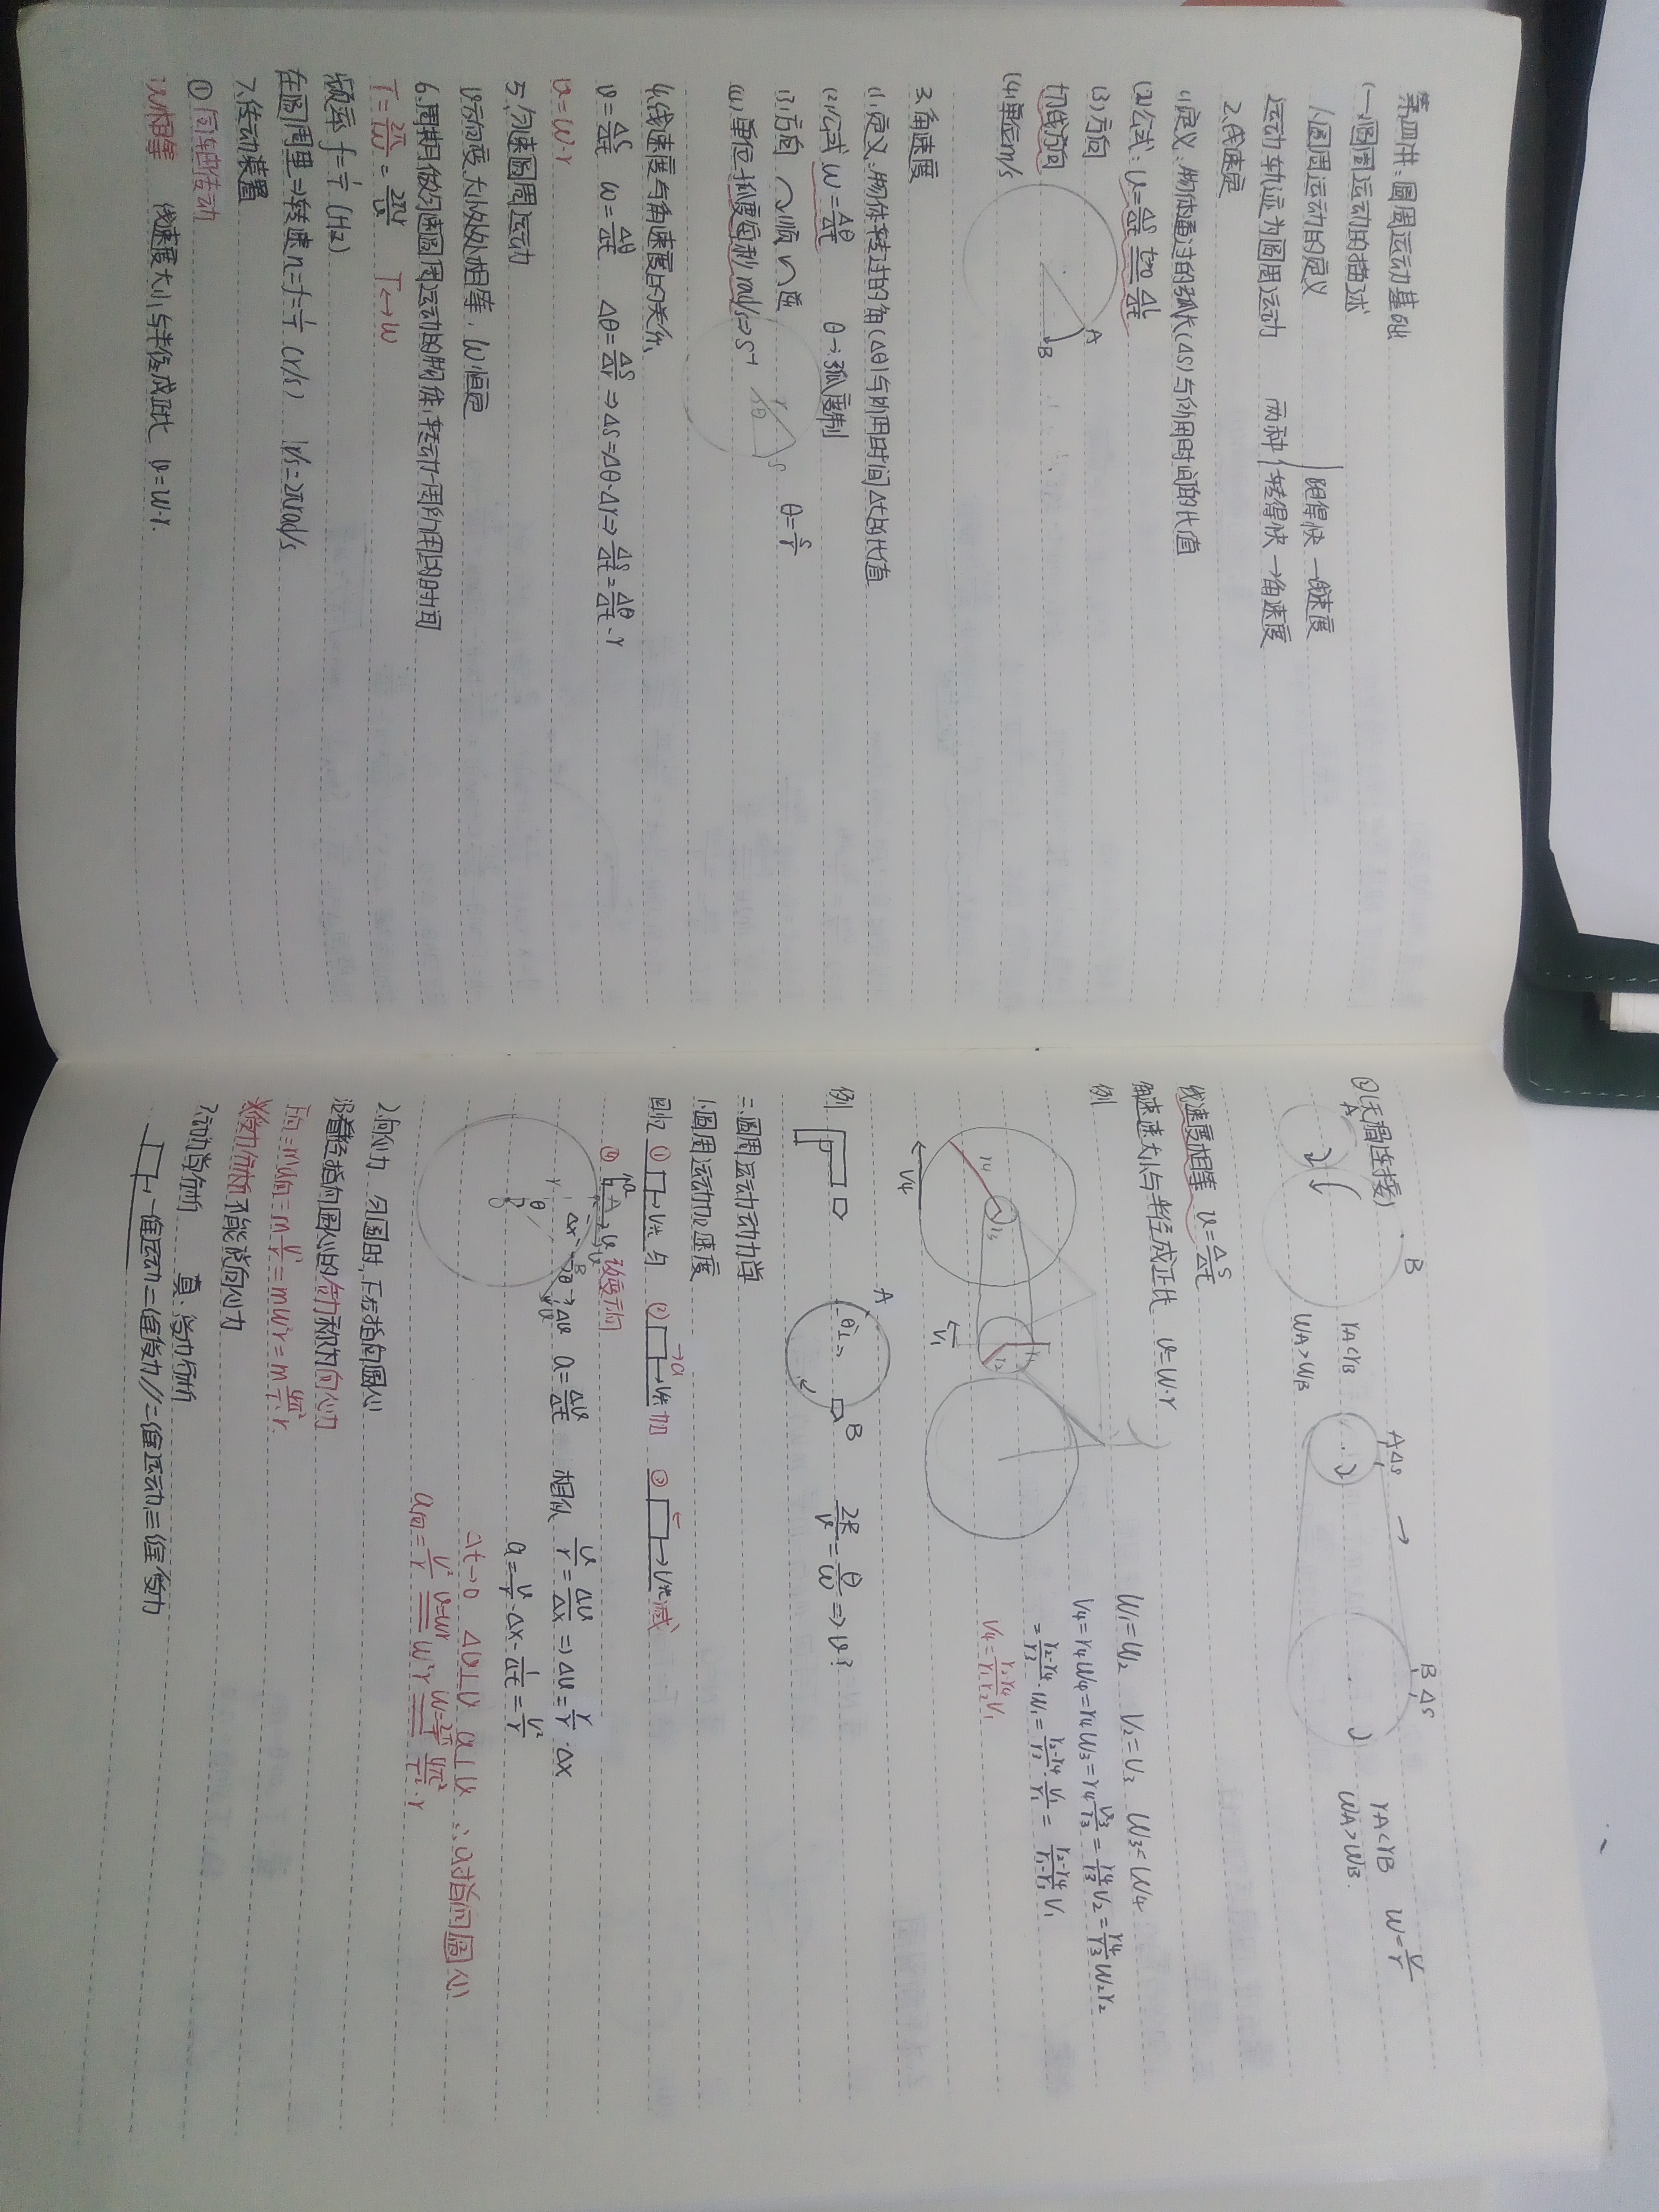 第四讲：圆周运动基础
(一)圆周运动的描述
1.圆周运动的定义
运动轨迹为圆周运动 两种 { 跑得快→线速度
转得快→角速度
2.线速度
(1)定义：物体通过的弧长(Δs)与所用时间的比值
(2)公式：v=Δs/Δt t→0 Δl/Δt
(3)方向
切线方向
(4)单位m/s
A
B
3.角速度
(1)定义：物体转过的角(Δθ)与所用时间Δt的比值
(2)公式 ω=Δθ/Δt θ→弧度制
(3)方向 顺 逆 θ=s/r
(4)单位 弧度每秒 rad/s⇒s⁻¹
r
θ
s
4.线速度与角速度的关系
v=Δs/Δt ω=Δθ/Δt Δθ=Δs/Δr⇒Δs=Δθ·Δr⇒Δs/Δt=Δθ/Δt·r
v=ω·r
5.匀速圆周运动
v方向变,大小处处相等,ω恒定
6.周期:做匀速圆周运动的物体,转动一周所用的时间
T=2π/ω=2πr/v T↔ω
频率 f=1/T (Hz)
在圆周里⇒转速n=f=1/T (r/s) 1r/s=2πrad/s
7.传动装置
①同轴传动
ω相等 线速度大小与半径成正比 v=ω·r
②(无滑连接)
A
B
rA<rB
ωA>ωB
A Δs →
B Δs
rA<rB ω=v/r
ωA>ωB
线速度相等 v=Δs/Δt
角速度大小与半径成正比 v=ω·r
例
r4
r3
r2
v4
v1
ω1=ω2 v2=v3 ω3=ω4
v4=r4ω4=r4ω3=r4 v3/r3=r4/r3 v2=r4/r3 ω2r2
=r2·r4/r3·ω1=r2·r4/r3·v1/r1=r2·r4/r1·r3 v1
例
A
θ
B
2R/v=θ/ω⇒v?
二.圆周运动动力学
1.圆周运动加速度
①→v 匀 ②→a →v 加 ③← →v 减
④ 改变方向
A
B
r
θ
Δx
Δv
a=Δv/Δt 相似 v/r=Δv/Δx⇒Δv=v/r·Δx
a=v/r·Δx·1/Δt=v²/r
Δt→0 Δv⊥v a⊥v ∴a时指向圆心
a向=v²/r v=ωr ω²r ω=2π/T 4π²/T²·r
2.向心力 匀圆时,F合指向圆心
沿着径指向圆心的合力称为向心力
F向=ma向=m v²/r=mω²r=m 4π²/T²·r
※受力分析不能说向心力